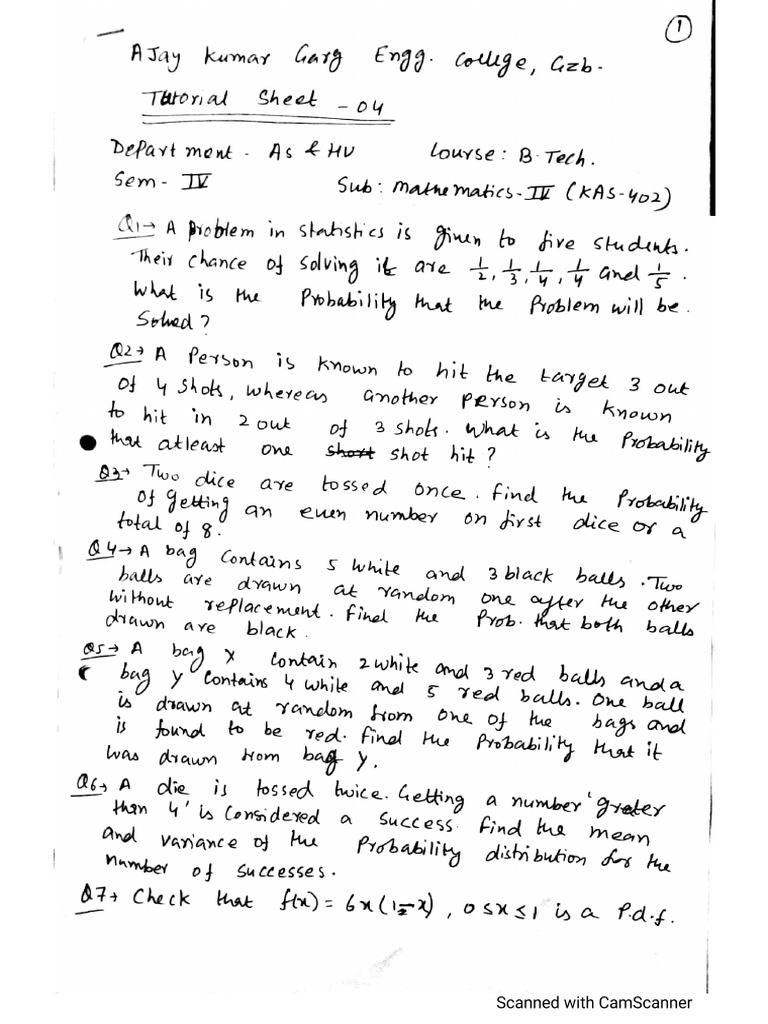 1
AJay Kumar Garg Engg. College, Gzb-
Tutorial Sheet - 04
Department - As & HU Course: B.Tech.
Sem - IV Sub: Mathematics-IV (KAS-402)
Q1→ A Problem in statistics is given to five students.
Their chance of solving it are 1/2, 1/3, 1/4, 1/4 and 1/5.
What is the Probability that the Problem will be.
Solved?
Q2→ A Person is known to hit the target 3 out
of 4 shots, whereas another person is known
to hit in 2 out of 3 shots. What is the Probability
that atleast one short shot hit?
Q3→ Two dice are tossed once. find the Probability
of getting an even number on first dice or a
total of 8.
Q4→ A bag contains 5 white and 3 black balls. Two
balls are drawn at random one after the other
without replacement. find the Prob. that both balls
drawn are black.
Q5→ A bag X contain 2 white and 3 red balls and a
bag Y contains 4 white and 5 red balls. One ball
is drawn at random from one of the bags and
is found to be red. find the Probability that it
was drawn from bag Y.
Q6→ A die is tossed twice. Getting a number 'greter
then 4' is considered a success. find the mean
and variance of the Probability distribution for the
number of successes.
Q7→ Check that f(x) = 6x(1-x), 0≤x≤1 is a P.d.f.
Scanned with CamScanner